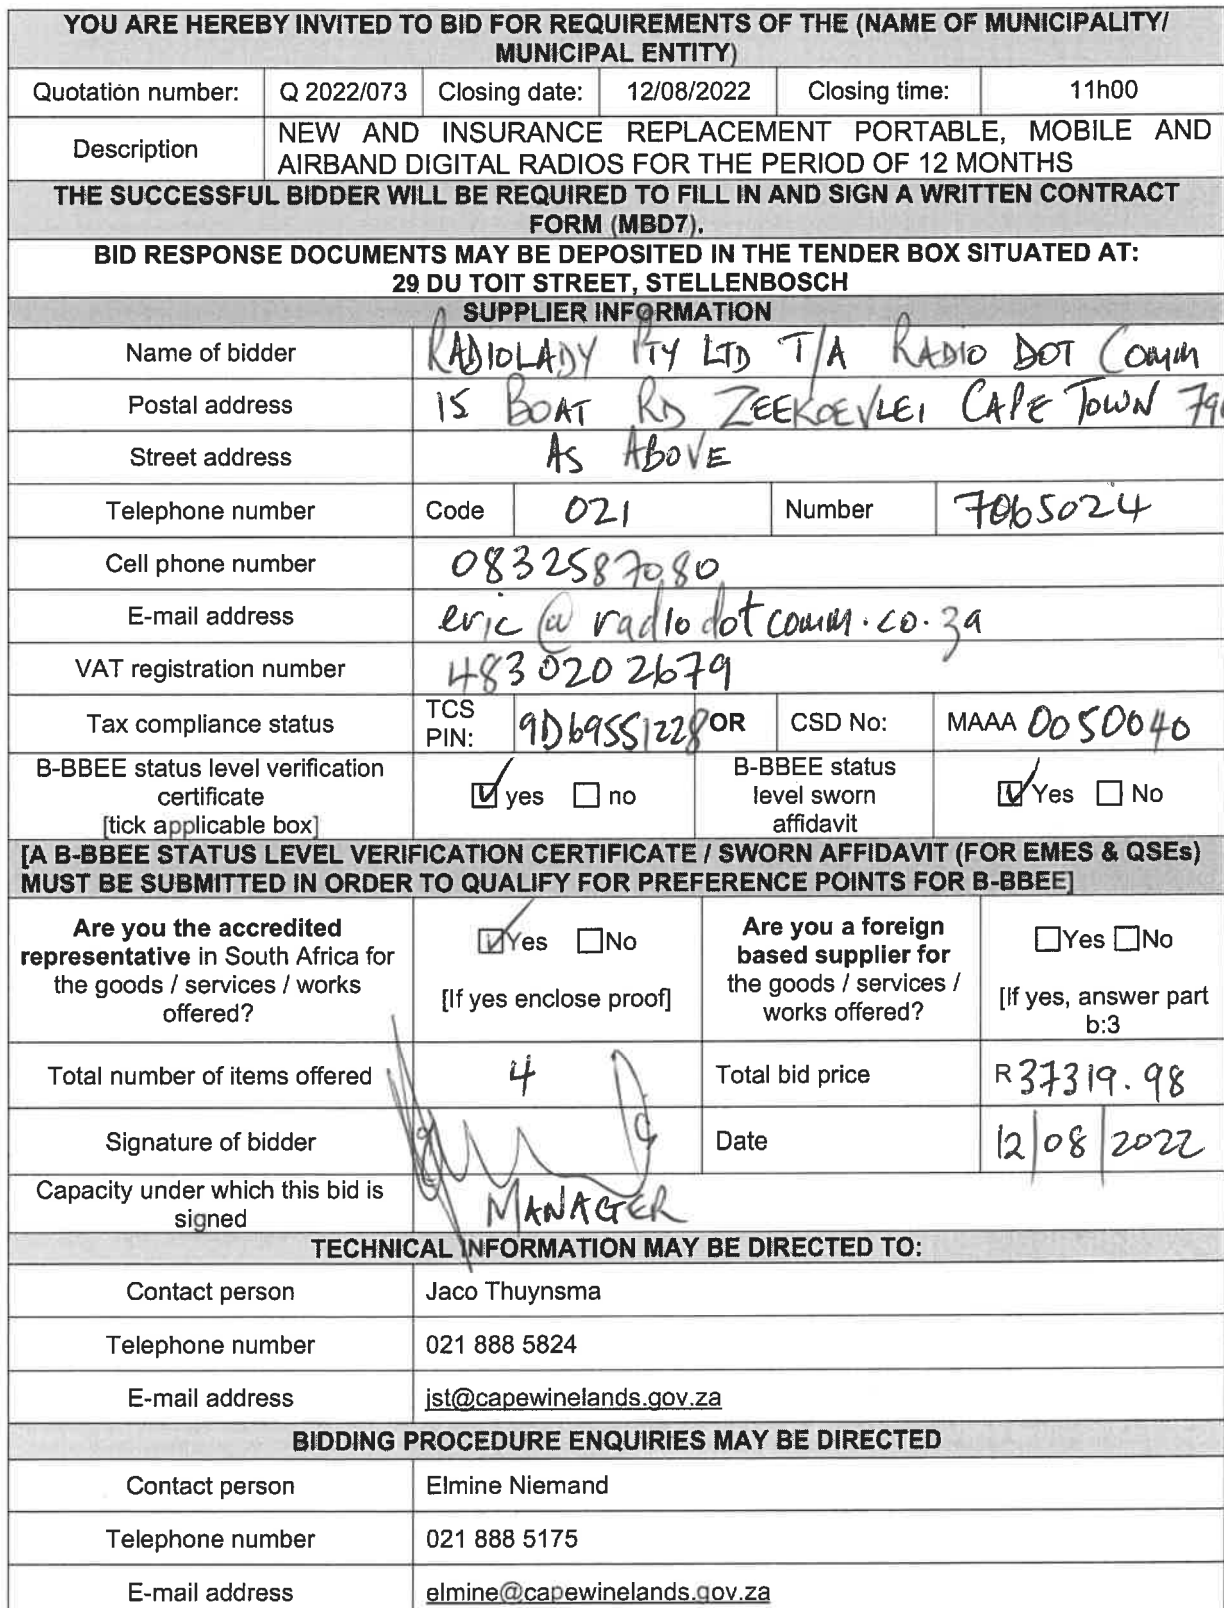 YOU ARE HEREBY INVITED TO BID FOR REQUIREMENTS OF THE (NAME OF MUNICIPALITY/
MUNICIPAL ENTITY)
Quotation number: Q 2022/073 Closing date: 12/08/2022 Closing time: 11h00
Description
NEW AND INSURANCE REPLACEMENT PORTABLE, MOBILE AND
AIRBAND DIGITAL RADIOS FOR THE PERIOD OF 12 MONTHS
THE SUCCESSFUL BIDDER WILL BE REQUIRED TO FILL IN AND SIGN A WRITTEN CONTRACT
FORM (MBD7).
BID RESPONSE DOCUMENTS MAY BE DEPOSITED IN THE TENDER BOX SITUATED AT:
29 DU TOIT STREET, STELLENBOSCH
SUPPLIER INFORMATION
Name of bidder RADIOLADY PTY LTD T/A RADIO DOT COMM
Postal address 15 BOAT RD ZEEKOEVLEI CAPE TOWN
Street address AS ABOVE
Telephone number Code 021 Number 7065024
Cell phone number 0832587080
E-mail address eric@radiodotcomm.co.za
VAT registration number 4830202679
Tax compliance status
TCS
PIN:
9D69551228 OR CSD No: MAAA 0050040
B-BBEE status level verification
certificate
[tick applicable box]
yes no
B-BBEE status
level sworn
affidavit
Yes No
[A B-BBEE STATUS LEVEL VERIFICATION CERTIFICATE / SWORN AFFIDAVIT (FOR EMES & QSEs)
MUST BE SUBMITTED IN ORDER TO QUALIFY FOR PREFERENCE POINTS FOR B-BBEE]
Are you the accredited
representative in South Africa for
the goods / services / works
offered?
Yes No
[If yes enclose proof]
Are you a foreign
based supplier for
the goods / services /
works offered?
Yes No
[If yes, answer part
b:3
Total number of items offered 4 Total bid price R 37319.98
Signature of bidder Date 12/08/2022
Capacity under which this bid is
signed
MANAGER
TECHNICAL INFORMATION MAY BE DIRECTED TO:
Contact person Jaco Thuynsma
Telephone number 021 888 5824
E-mail address jst@capewinelands.gov.za
BIDDING PROCEDURE ENQUIRIES MAY BE DIRECTED
Contact person Elmine Niemand
Telephone number 021 888 5175
E-mail address elmine@capewinelands.gov.za